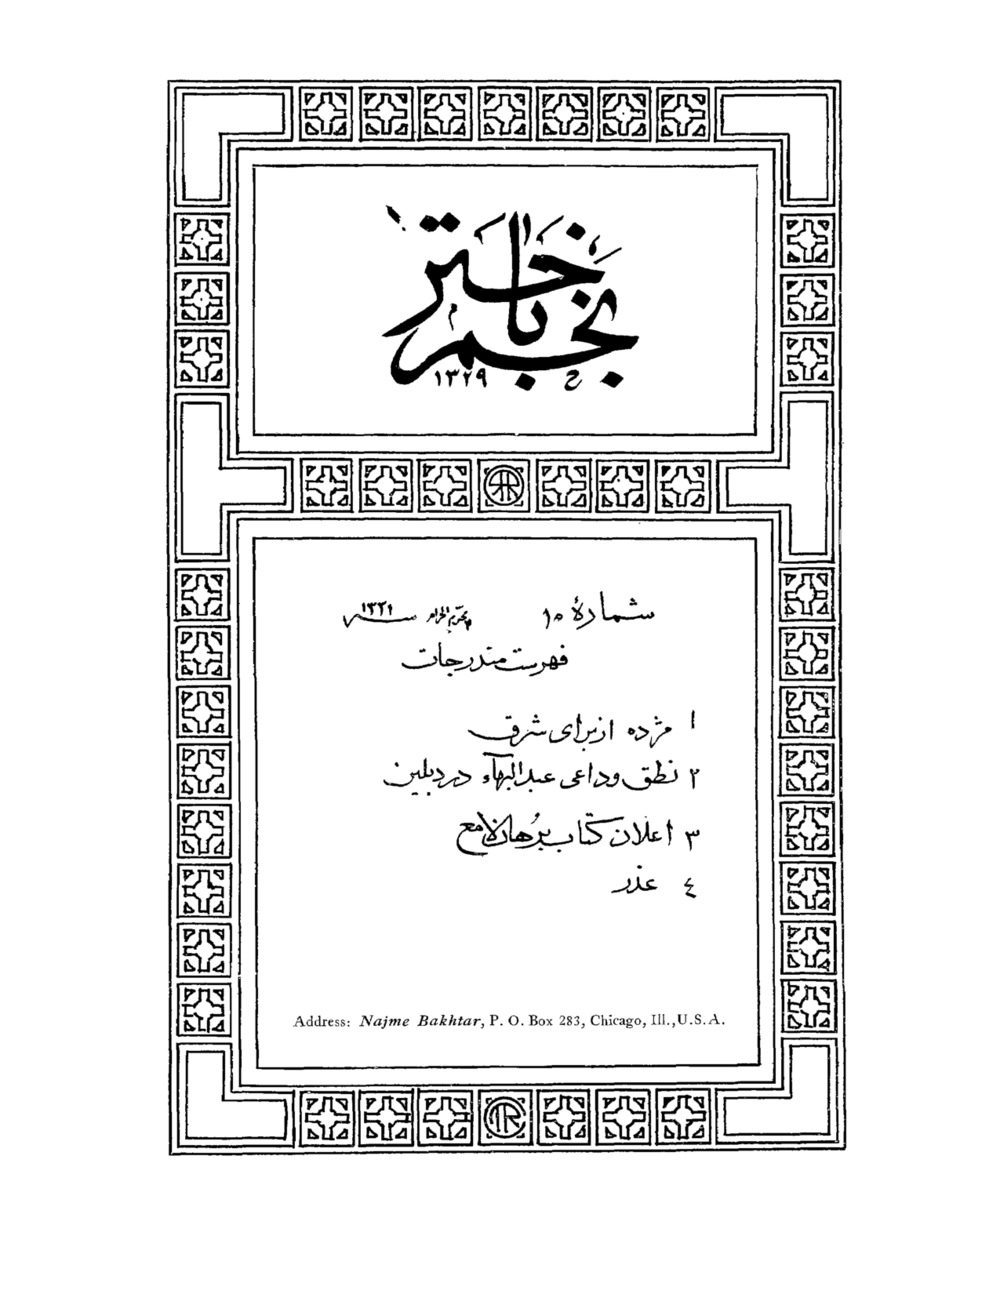 نجم باختر
ح ۱۳۲۹
شمارهٔ ۱۵ محرّم الحرام سنه ۱۳۳۱
فهرست مندرجات
۱ مژده از برای شرق
۲ نطق وداعی عبدالبهآء در دبلین
۳ اعلان کتاب بُرهان لامع
٤ عذر
Address: Najme Bakhtar, P. O. Box 283, Chicago, Ill., U.S.A.